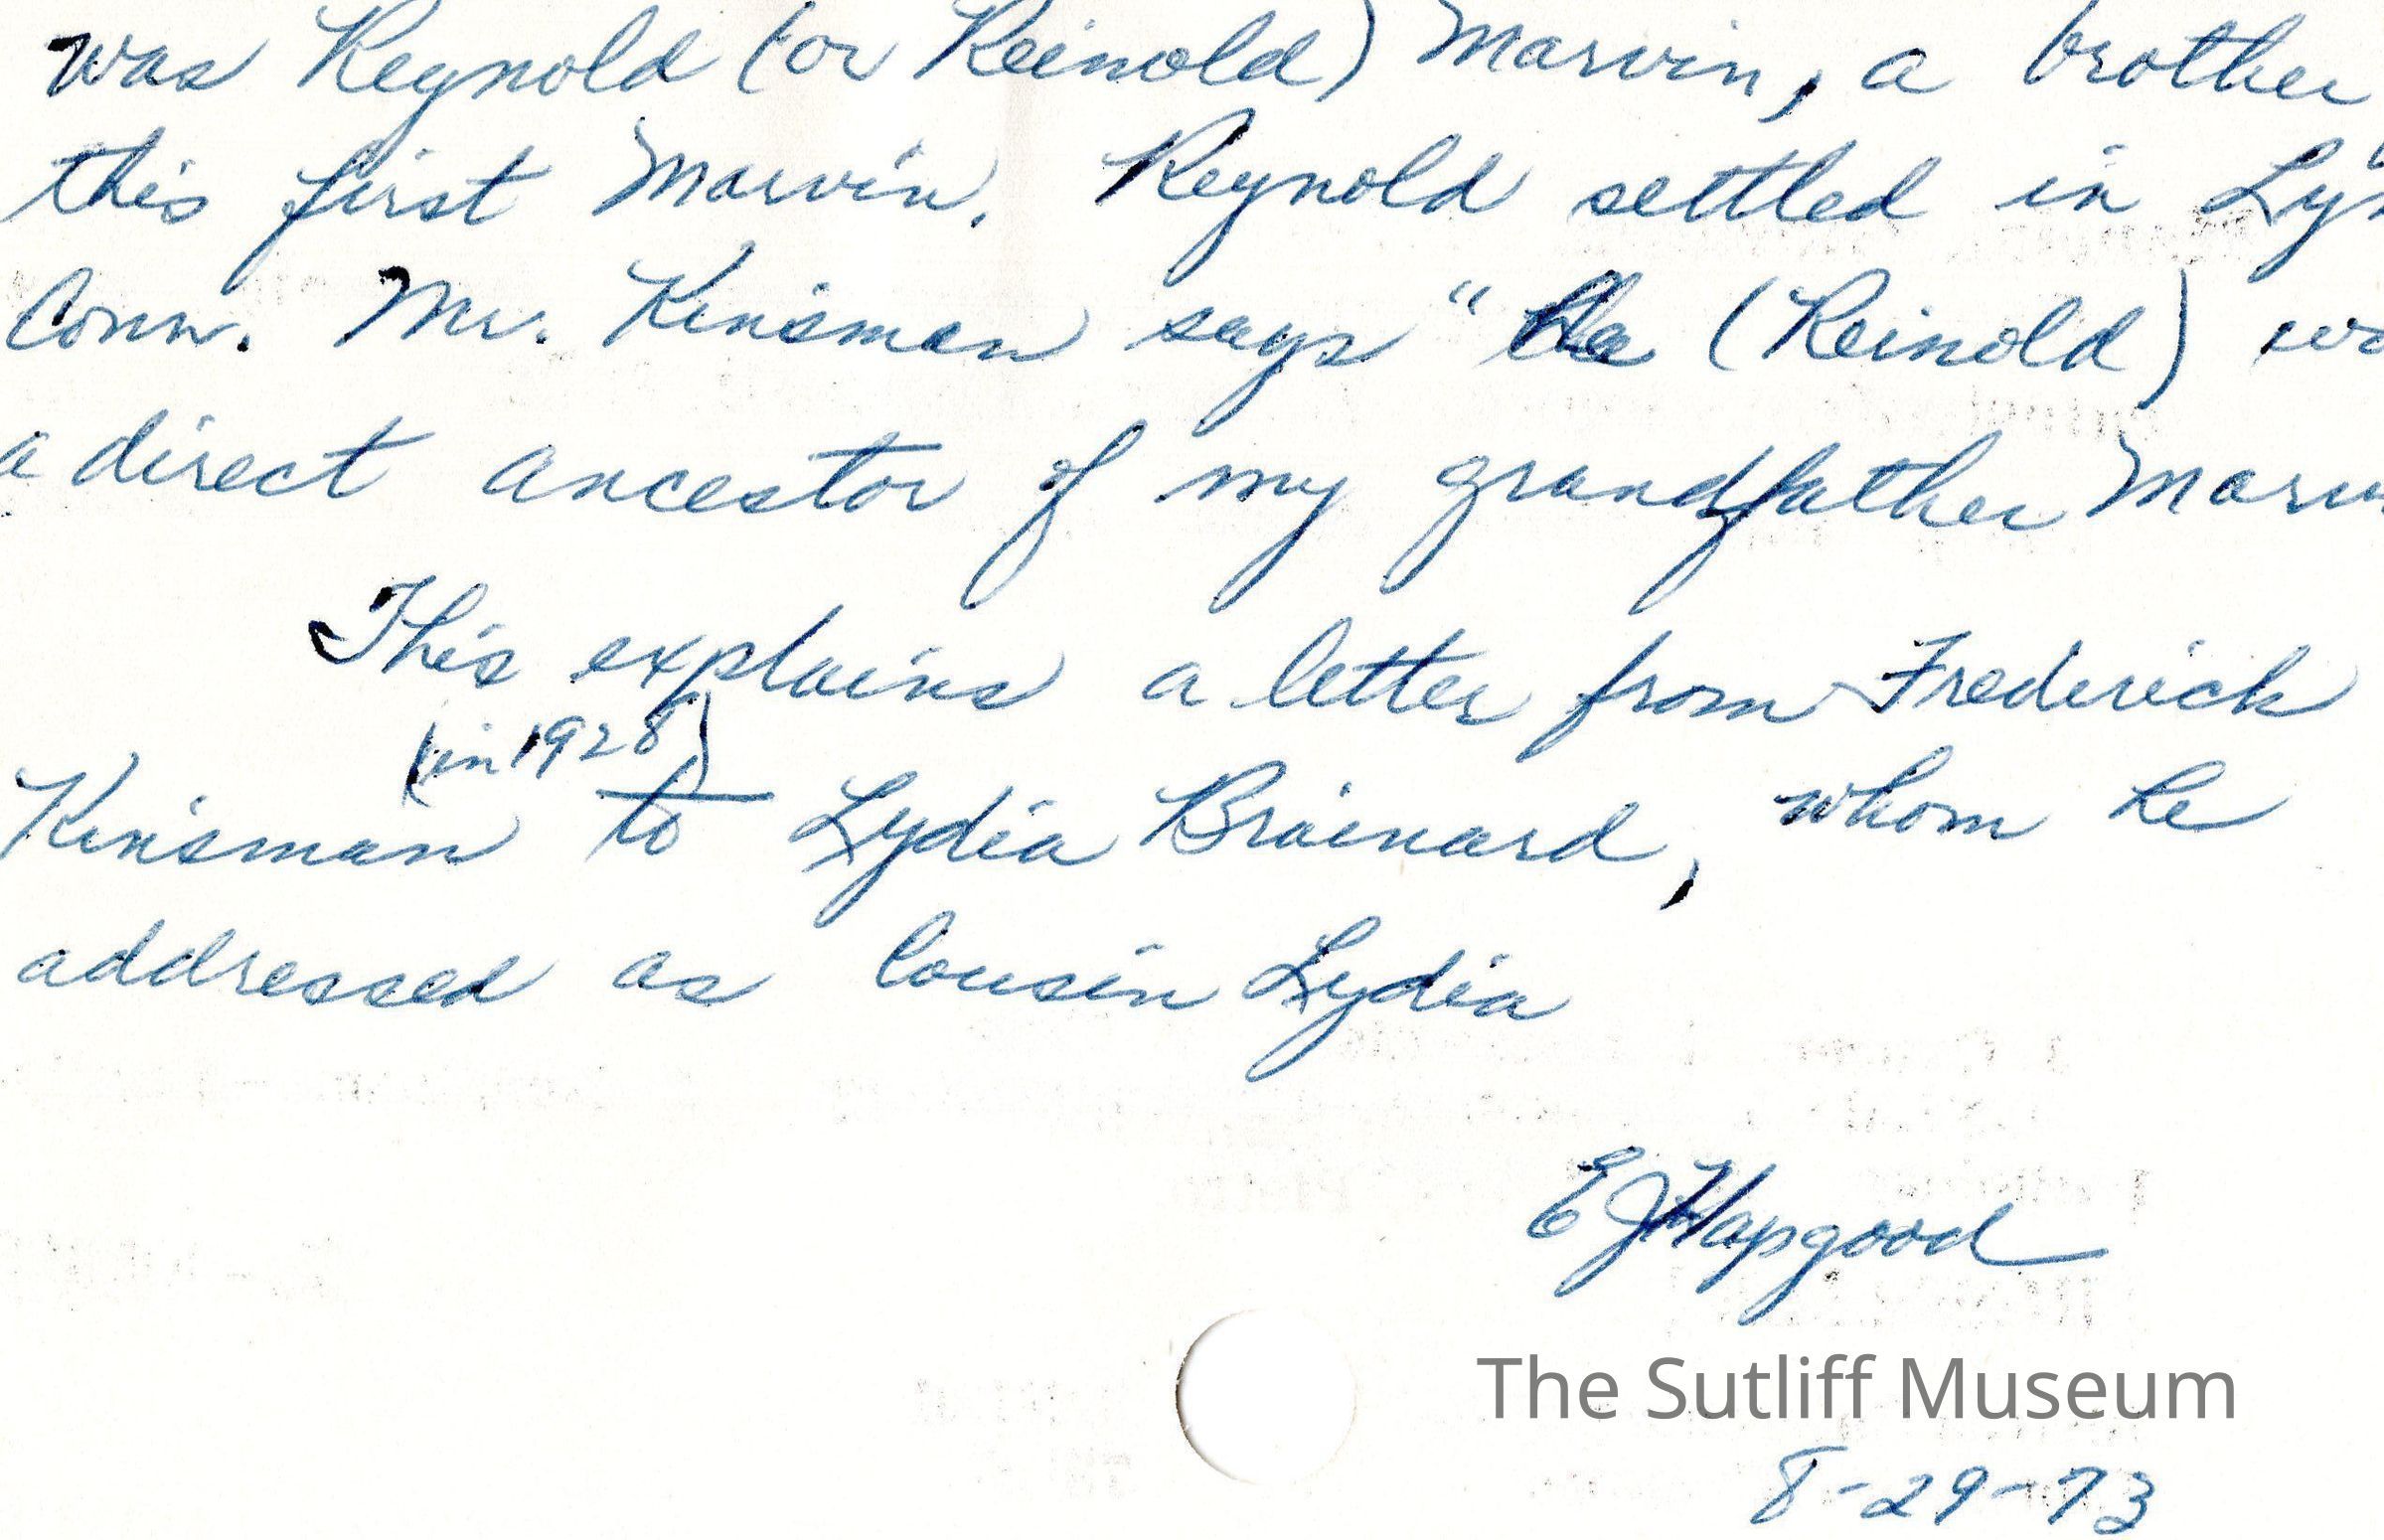 was Reynold (or Reinold) Marvin, a brother
this first Marvin. Reynold settled in
Conn. Mr. Kinsman says "He (Reinold)
a direct ancestor of my grandfather
This explains a letter from Frederick
(in 1928)
Kinsman to Lydia Brainard, whom he
addressed as Cousin Lydia
E J Hapgood
The Sutliff Museum
8-29-73